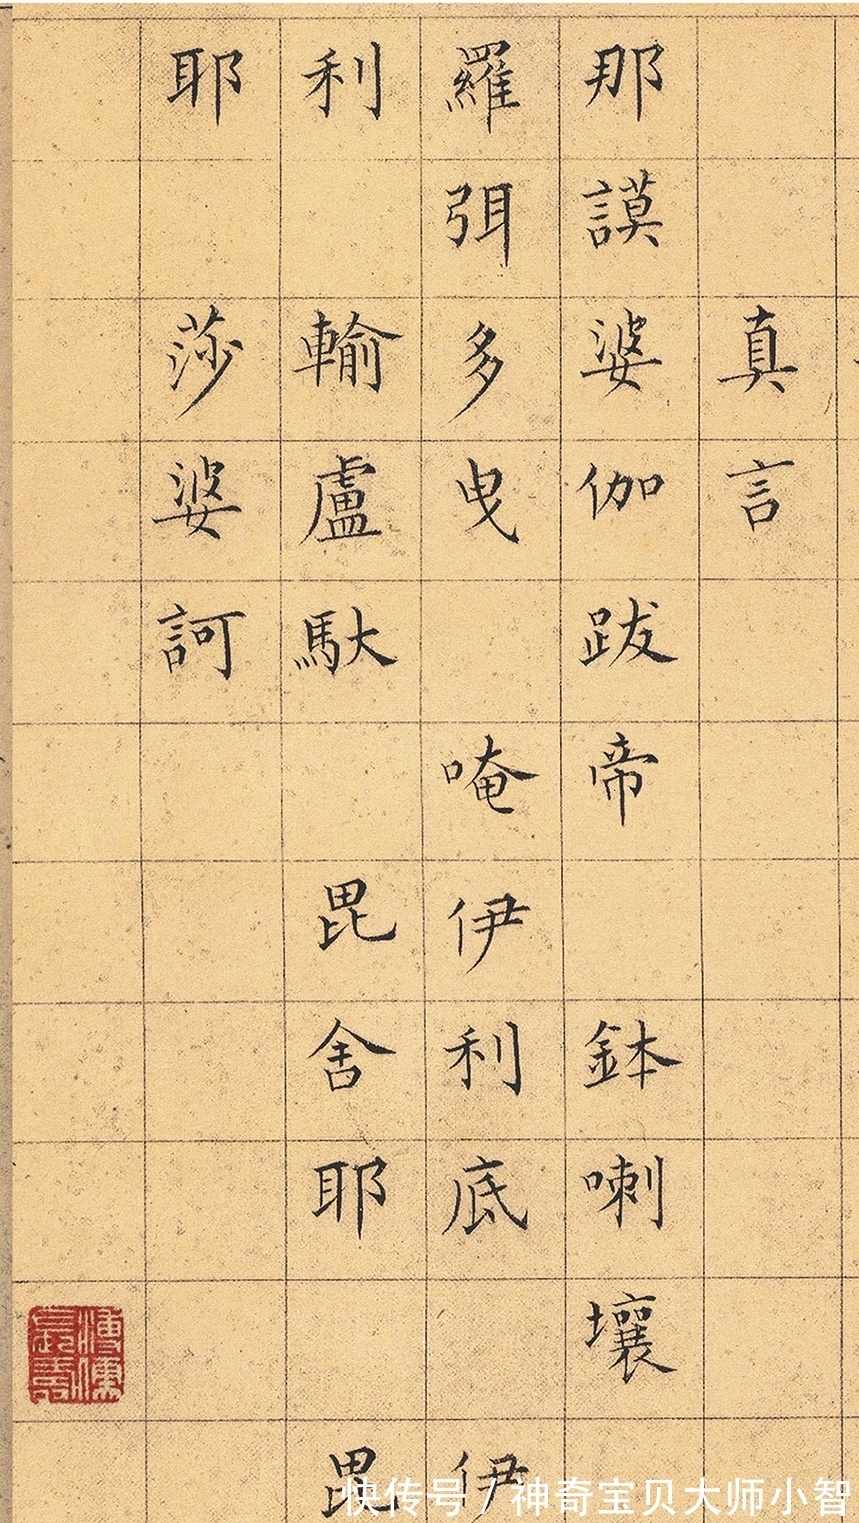 真言
那謨婆伽跋帝 鉢喇壤
羅弭多曳 唵伊利底 伊
利 輸盧馱 毘舍耶 毘
耶 莎婆訶
快传号 / 神奇宝贝大师小智